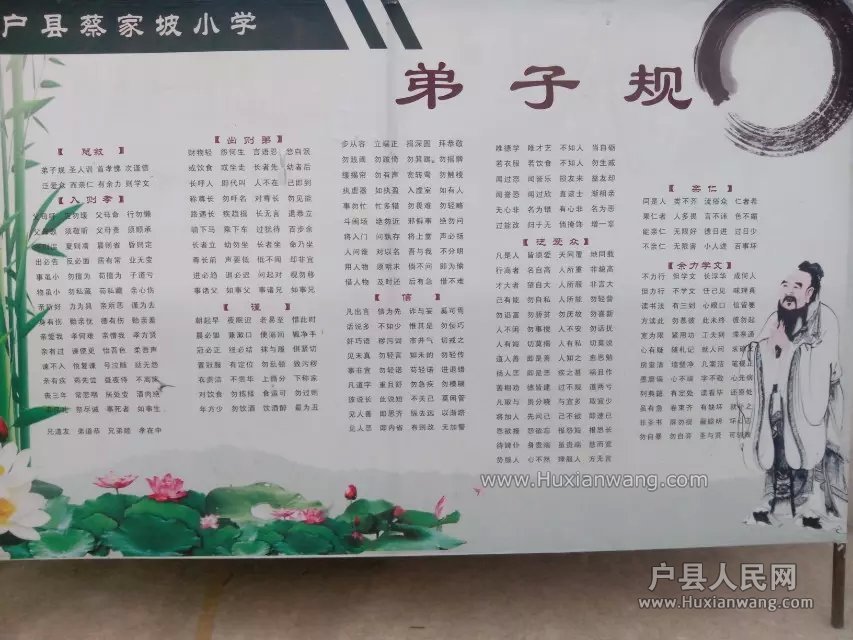 户县蔡家坡小学
弟子规
【总叙】
弟子规 圣人训 首孝悌 次谨信
泛爱众 而亲仁 有余力 则学文
【入则孝】
父母呼 应勿缓 父母命 行勿懒
父母教 须敬听 父母责 须顺承
夏则凊 晨则省 昏则定
出必告 反必面 居有常 业无变
事虽小 勿擅为 苟擅为 子道亏
物虽小 勿私藏 苟私藏 亲心伤
亲所好 力为具 亲所恶 谨为去
身有伤 贻亲忧 德有伤 贻亲羞
亲爱我 孝何难 亲憎我 孝方贤
亲有过 谏使更 怡吾色 柔吾声
谏不入 悦复谏 号泣随 挞无怨
亲有疾 药先尝 昼夜侍 不离床
丧三年 常悲咽 居处变 酒肉绝
丧尽礼 祭尽诚 事死者 如事生
兄道友 弟道恭 兄弟睦 孝在中
【出则弟】
财物轻 怨何生 言语忍 忿自泯
或饮食 或坐走 长者先 幼者后
长呼人 即代叫 人不在 己即到
称尊长 勿呼名 对尊长 勿见能
路遇长 疾趋揖 长无言 退恭立
骑下马 乘下车 过犹待 百步余
长者立 幼勿坐 长者坐 命乃坐
尊长前 声要低 低不闻 却非宜
进必趋 退必迟 问起对 视勿移
事诸父 如事父 事诸兄 如事兄
【谨】
朝起早 夜眠迟 老易至 惜此时
晨必盥 兼漱口 便溺回 辄净手
冠必正 纽必结 袜与履 俱紧切
置冠服 有定位 勿乱顿 致污秽
衣贵洁 不贵华 上循分 下称家
对饮食 勿拣择 食适可 勿过则
年方少 勿饮酒 饮酒醉 最为丑
步从容 立端正 揖深圆 拜恭敬
勿践阈 勿跛倚 勿箕踞 勿摇髀
缓揭帘 勿有声 宽转弯 勿触棱
执虚器 如执盈 入虚室 如有人
事勿忙 忙多错 勿畏难 勿轻略
斗闹场 绝勿近 邪僻事 绝勿问
将入门 问孰存 将上堂 声必扬
人问谁 对以名 吾与我 不分明
用人物 须明求 倘不问 即为偷
借人物 及时还 后有急 借不难
【信】
凡出言 信为先 诈与妄 奚可焉
话说多 不如少 惟其是 勿佞巧
奸巧语 秽污词 市井气 切戒之
见未真 勿轻言 知未的 勿轻传
事非宜 勿轻诺 苟轻诺 进退错
凡道字 重且舒 勿急疾 勿模糊
彼说长 此说短 不关己 莫闲管
见人善 即思齐 纵去远 以渐跻
见人恶 即内省 有则改 无加警
唯德学 唯才艺 不如人 当自砺
若衣服 若饮食 不如人 勿生戚
闻过怒 闻誉乐 损友来 益友却
闻誉恐 闻过欣 直谅士 渐相亲
无心非 名为错 有心非 名为恶
过能改 归于无 倘掩饰 增一辜
【泛爱众】
凡是人 皆须爱 天同覆 地同载
行高者 名自高 人所重 非貌高
才大者 望自大 人所服 非言大
己有能 勿自私 人所能 勿轻訾
勿谄富 勿骄贫 勿厌故 勿喜新
人不闲 勿事搅 人不安 勿话扰
人有短 切莫揭 人有私 切莫说
道人善 即是善 人知之 愈思勉
扬人恶 即是恶 疾之甚 祸且作
善相劝 德皆建 过不规 道两亏
凡取与 贵分晓 与宜多 取宜少
将加人 先问己 己不欲 即速已
恩欲报 怨欲忘 报怨短 报恩长
待婢仆 身贵端 虽贵端 慈而宽
势服人 心不然 理服人 方无言
【亲仁】
同是人 类不齐 流俗众 仁者希
果仁者 人多畏 言不讳 色不媚
能亲仁 无限好 德日进 过日少
不亲仁 无限害 小人进 百事坏
【余力学文】
不力行 但学文 长浮华 成何人
但力行 不学文 任己见 昧理真
读书法 有三到 心眼口 信皆要
方读此 勿慕彼 此未终 彼勿起
宽为限 紧用功 工夫到 滞塞通
心有疑 随札记 就人问 求确
房室清 墙壁净 几案洁 笔砚正
墨磨偏 心不端 字不敬 心先病
列典籍 有定处 读看毕 还原处
虽有急 卷束齐 有缺坏 就补之
非圣书 屏勿视 蔽聪明 坏心志
勿自暴 勿自弃 圣与贤 可驯致
www.Huxianwang.com
户县人民网
www.Huxianwang.com